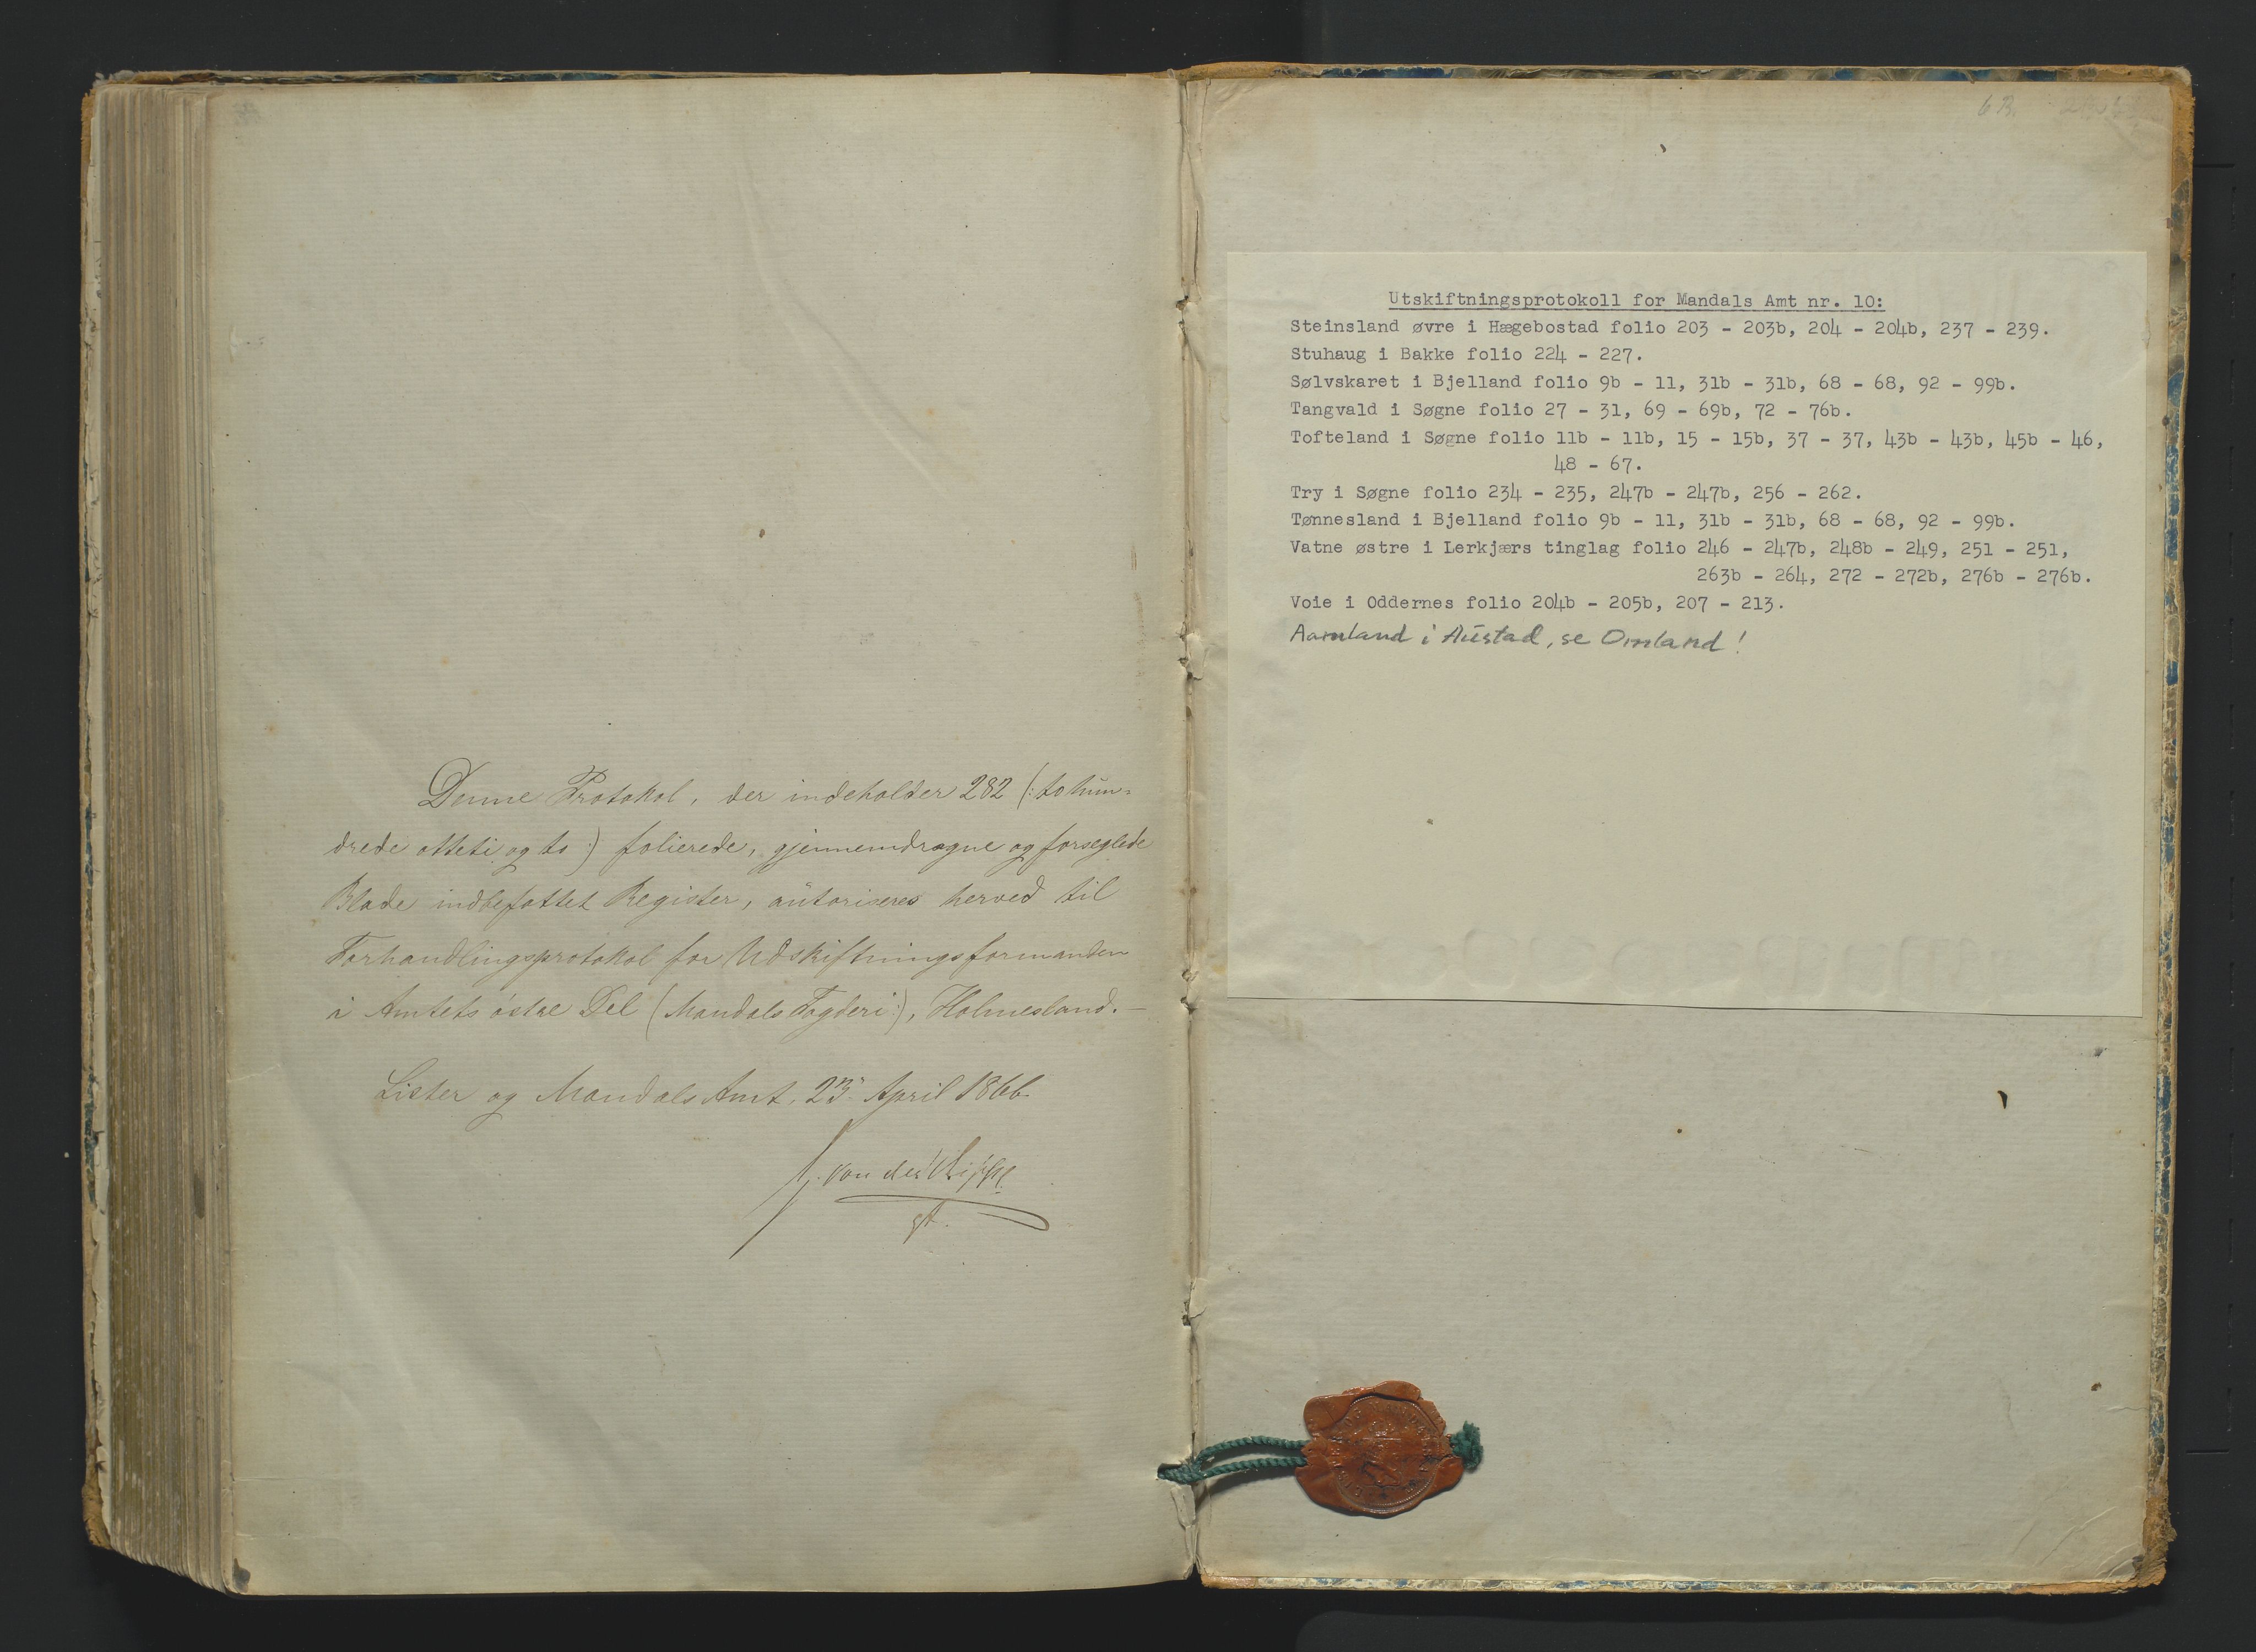 Denne Protokol, der indeholder 282 (: to hun-
drede otteti og to :) folierede, gjennemdragne og forseglede
Blade indbefattet Register, autoriseres herved til
Forhandlingsprotokol for Udskiftningsformanden
i Amtets østre Del (Mandals Fogderi :), Holmesland. —
Lister og Mandals Amt, 23 April 1866.
J. von der Lippe
gt.
6 B.
Utskiftningsprotokoll for Mandals Amt nr. 10:
Steinsland øvre i Hægebostad folio 203 - 203b, 204 - 204b, 237 - 239.
Stuhaug i Bakke folio 224 - 227.
Sølvskaret i Bjelland folio 9b - 11, 31b - 31b, 68 - 68, 92 - 99b.
Tangvald i Søgne folio 27 - 31, 69 - 69b, 72 - 76b.
Tofteland i Søgne folio 11b - 11b, 15 - 15b, 37 - 37, 43b - 43b, 45b - 46,
48 - 67.
Try i Søgne folio 234 - 235, 247b - 247b, 256 - 262.
Tønnesland i Bjelland folio 9b - 11, 31b - 31b, 68 - 68, 92 - 99b.
Vatne østre i Lerkjærs tinglag folio 246 - 247b, 248b - 249, 251 - 251,
263b - 264, 272 - 272b, 276b - 276b.
Voie i Oddernes folio 204b - 205b, 207 - 213.
Aamland i Austad, se Omland!